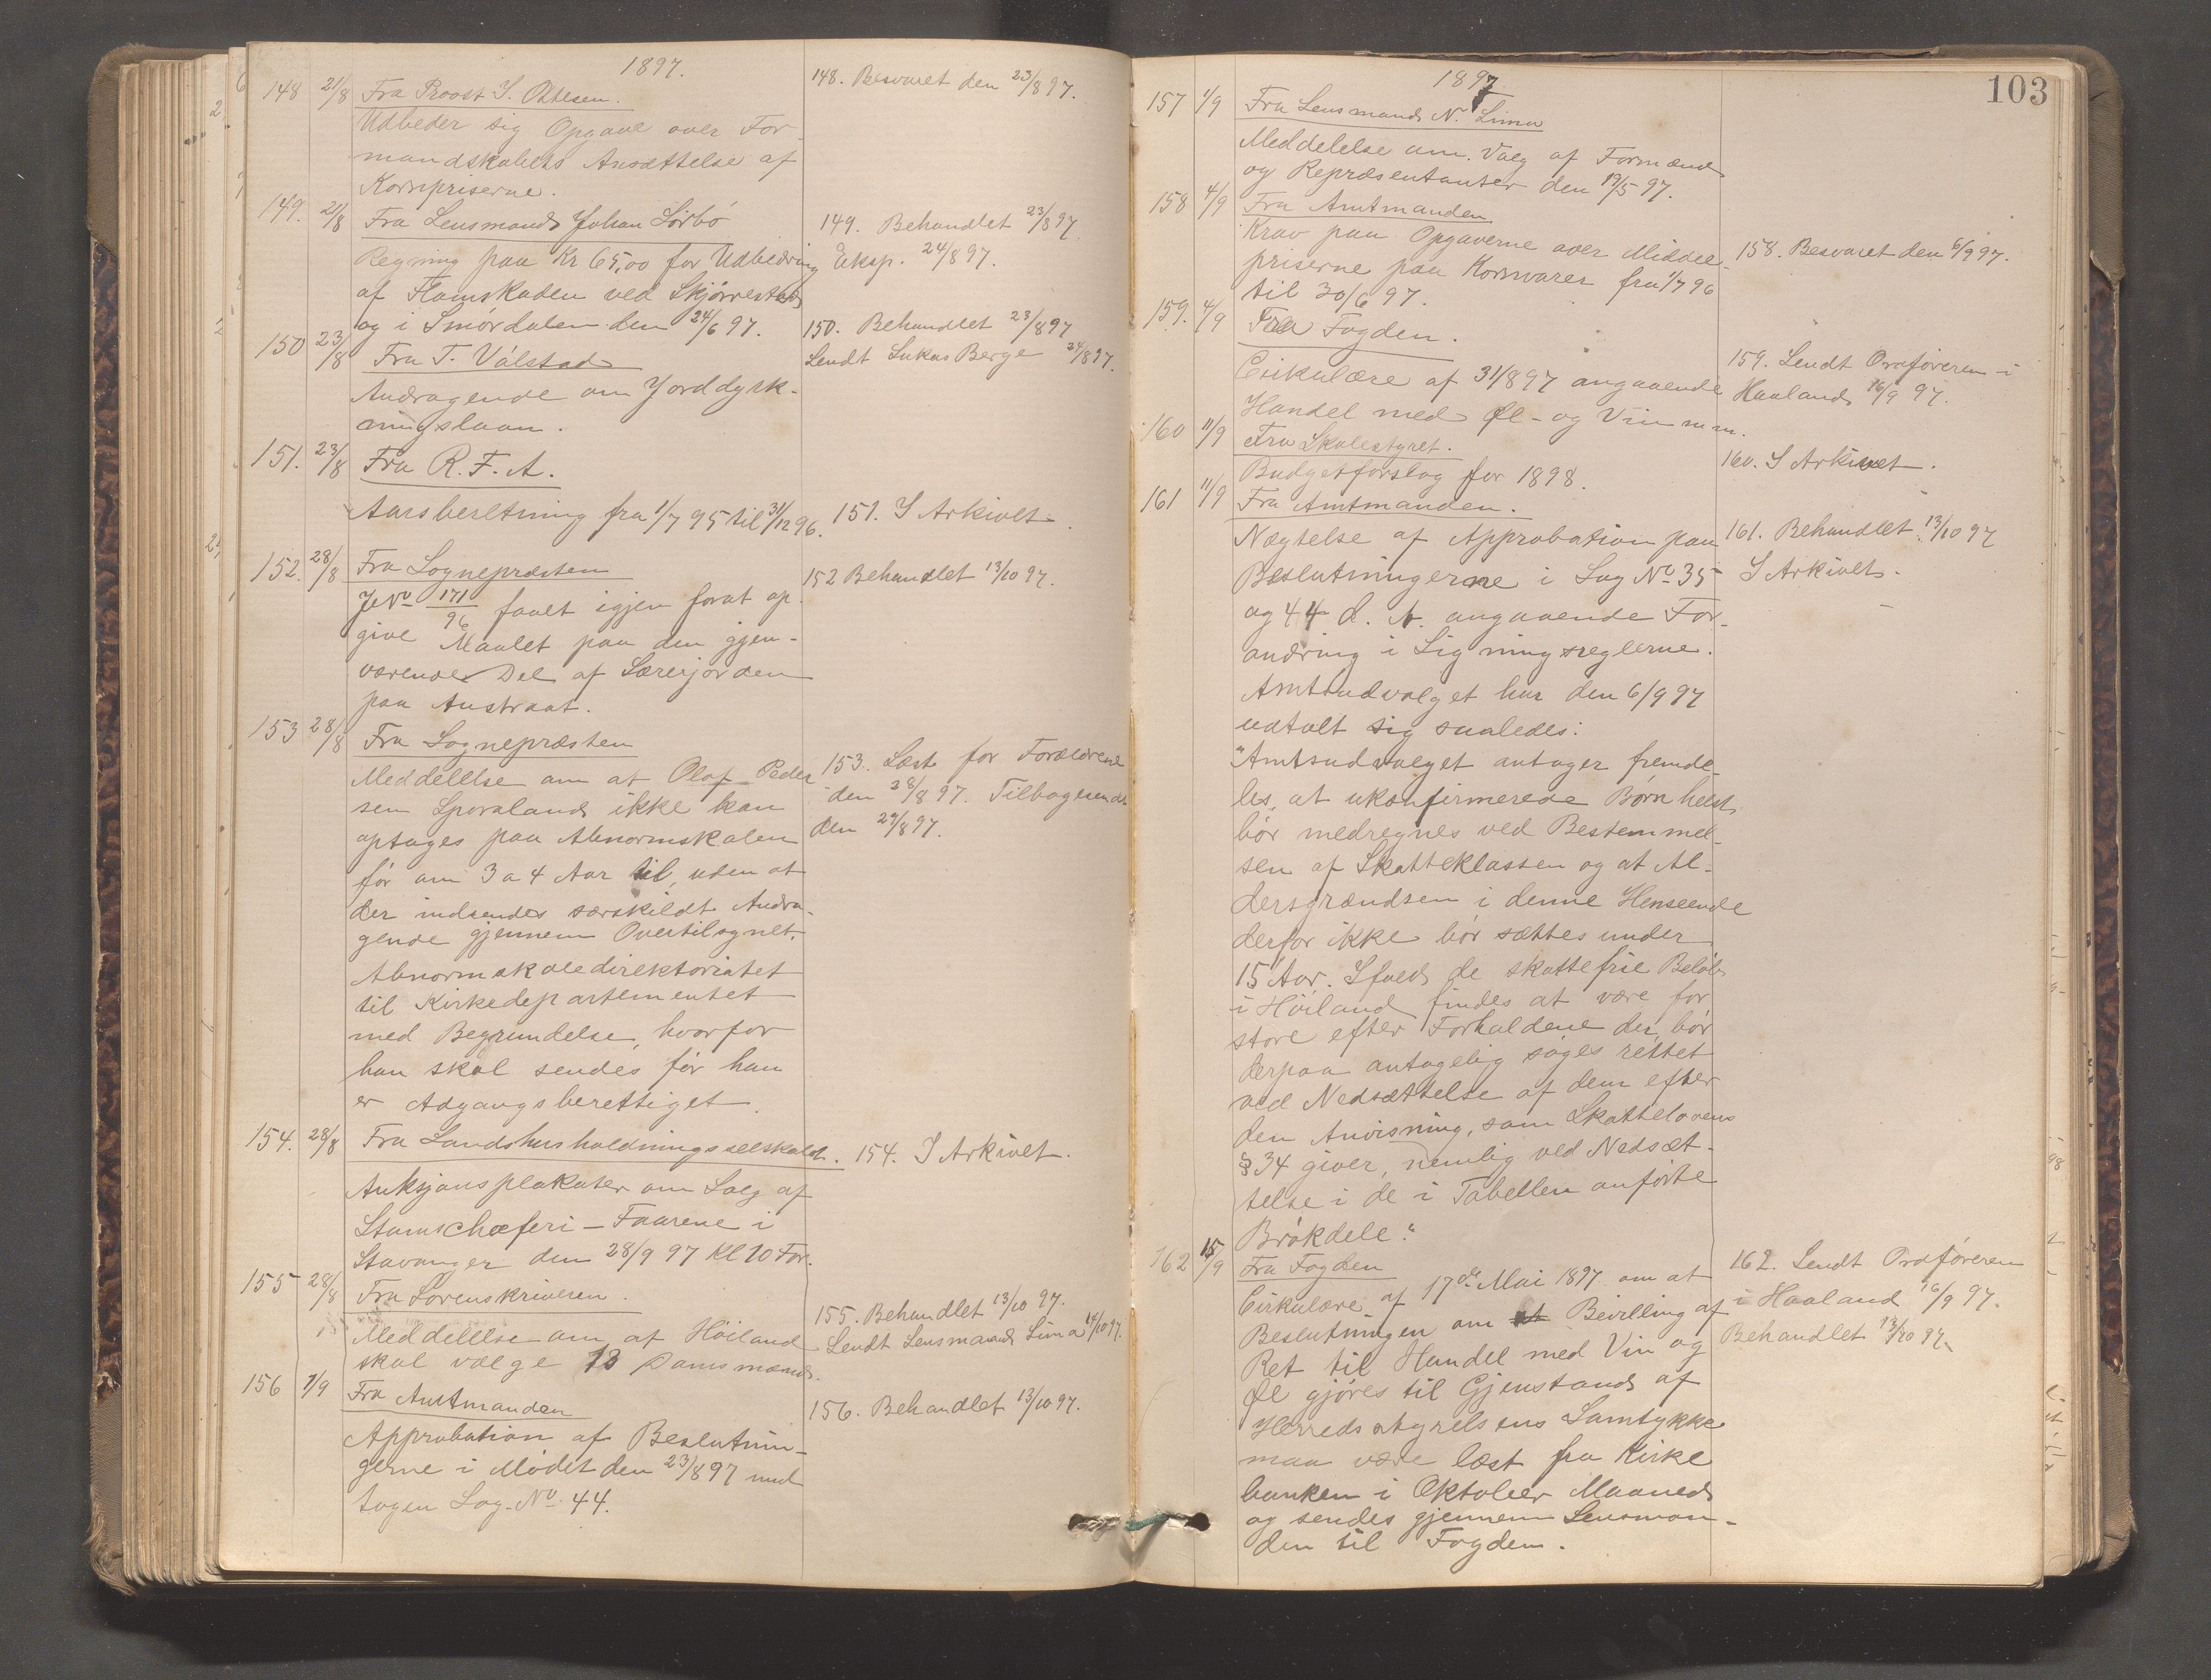 1897.
148 21/8 Fra Provst I. Oftesen.
Udbeder sig Opgave over For-
mandskabets Ansættelse af
Kornpriserne.
148. Besvaret den 23/8 97.
149. 21/8 Fra Lensmand Johan Sørbø
Regning paa Kr 65,00 for Udbedring
af Flomskaden ved Skjørrestad
og i Smørdalen den 24/6 97.
149. Behandlet 23/8 97
Eksp. 24/8 97.
150 23/8 Fra T. Válstad
Andragende om Jorddyrk-
ningslaan.
150. Behandlet 23/8 97
Sendt Lukas Berge 24/8 97.
151. 23/8 Fra R. F. A.
Aarsberetning fra 1/7 95 til 31/12 96.
151. I Arkivet.
152. 28/8 Fra Sognepræsten
JNo 171/96 faaet igjen forat op-
give Maalet paa den gjen-
værende Del af Lærerjorden
paa Austraat.
152 Behandlet 13/10 97.
153 28/8 Fra Sognepræsten
Meddelelse om at Olaf Peder-
sen Sporaland ikke kan
optages paa Abnormskolen
før om 3 a 4 Aar til, uden at
der indsendes særskildt Andra-
gende gjennem Overtilsynet,
Abnormskoledirektoriatet
til Kirkedepartementet
med Begrundelse, hvorfor
han skal sendes før han
er Adgangsberettiget.
153. Læst for Forældrene
den 28/8 97. Tilbagesendt
den 29/8 97.
154. 28/8 Fra Landhusholdningsselskabet.
Auksjonsplakater om Salg af
Stamschæferi-Faarene i
Stavanger den 28/9 97 Kl 10 For.
154. I Arkivet.
155 28/8 Fra Sorenskriveren.
Meddelelse om at Høiland
skal vælge 13 Domsmænd.
155. Behandlet 13/10 97.
Sendt Lensmand Lima 14/10 97.
156 1/9 Fra Amtmanden
Approbation af Beslutnin-
gerne i Mødet den 23/8 97 und-
tagen Sag No 44.
156. Behandlet 13/10 97.
103
1897
157 1/9 Fra Lensmand N. Lima
Meddelelse om Valg af Formænd
og Repræsentanter den 19/5 97.
158 4/9 Fra Amtmanden
Krav paa Opgaverne over Middel-
priserne paa Kornvarer fra 1/7 96
til 30/6 97.
158. Besvaret den 6/9 97.
159. 4/9 Fra Fogden.
Cirkulære af 31/8 97 angaaende
Handel med Øl- og Vin m m.
159. Sendt Ordføreren i
Haaland 16/9 97.
160 11/9 Fra Skolestyret.
Budgetforslag for 1898.
160. I Arkivet.
161 11/9 Fra Amtmanden.
Nægtelse af Approbation paa
Beslutningerne i Sag No 35
og 44 d. A. angaaende For-
andring i Ligningsreglerne.
Amtsudvalget har den 6/9 97
udtalt sig saaledes:
"Amtsudvalget antager fremde-
les, at ukonfirmerede Børn helst
bør medregnes ved Bestemmel-
sen af Skatteklassen og at Al-
dersgrændsen i denne Henseende
derfor ikke bør sættes under
15 Aar. Ifald de skattefrie Beløb
i Høiland findes at være for
store efter Forholdene der, bør
derpaa antagelig søges rettet
ved Nedsættelse af dem efter
den Anvisning, som Skattelovens
§ 34 giver, nemlig ved Nedsæt-
telse i de i Tabellen anførte
Brøkdele."
161. Behandlet 13/10 97
I Arkivet.
162 15/9 Fra Fogden
Cirkulære af 17de Mai 1897 om at
Beslutningen om at Bevilling af
Ret til Handel med Vin og
Øl gjøres til Gjenstand af
Herredsstyrelsens Samtykke
maa være læst fra Kirke-
bakken i Oktober Maaned
og sendes gjennem Lensman-
den til Fogden.
162. Sendt Ordføreren
i Haaland 16/9 97.
Behandlet 13/10 97.